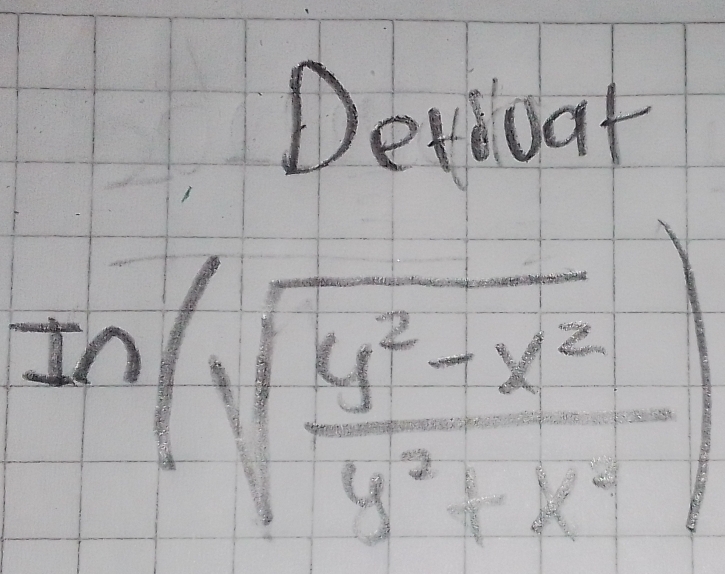 Derivat
In(√((y² - x²)/(y² + x²)))